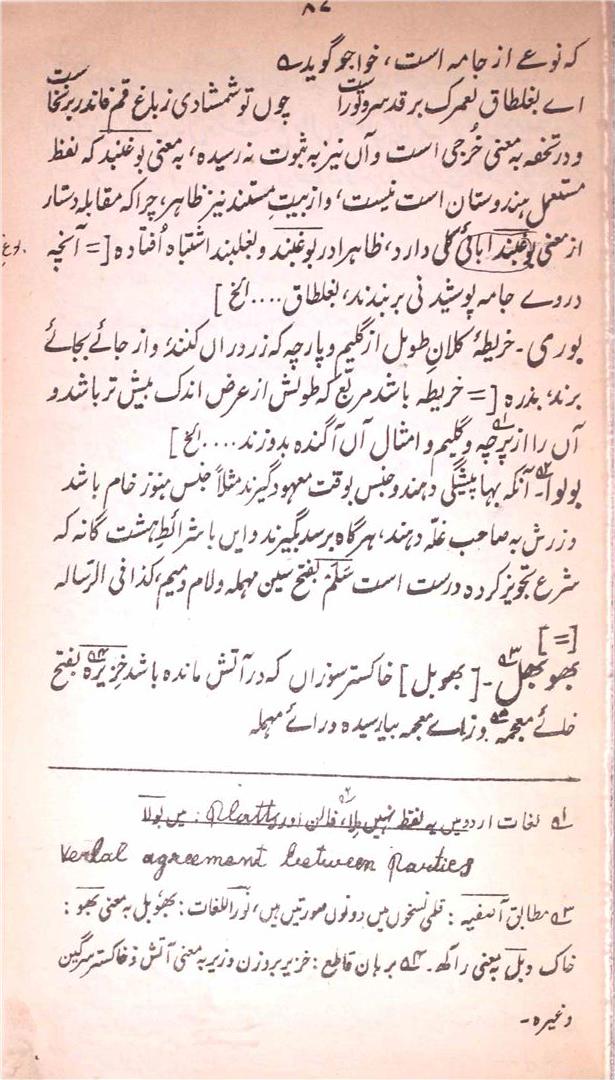 ۸۷
که نوعے از جامه است، خواجو گوید ؎
اے بغلطاق لعمرک بر قد سرو تو راست چوں تو شمشادی ز باغ قم فاندر برنخاست
و در تحفه به معنی خُرجی است و آں نیز به ثبوت نه رسیده، به معنی بوغبند که لفظ
مستعمل ہندوستان است نیست، و از بیتِ مستند نیز ظاہر، چرا که مقابله دستار
از معنی بوغبند ابائی کلی دارد، ظاہرا در بوغبند و بغلبند اشتباه اُفتاده [= آنچه
در وے جامه پوشیدنی بر بندند، بغلطاق .... الخ]
بوری۔ خریطهٔ کلانِ طویل از گلیم و پارچه که زر در اں کنند و از جائے بجائے
برند، بدره [= خریطه باشد مربّع که طولش از عرض اندک بیش تر باشد و
آں را از پرچه و گلیم و امثال آں آگنده بدوزند .... الخ]
بولوا۔ آنکه بہا پیشگی دہند و جنس بوقت معہود گیرند مثلاً جنس ہنوز خام باشد
و زرش به صاحب غلّه دہند، ہرگاه برسد بگیرند و ایں با شرائطِ ہشت گانه که
شرع تجویز کرده درست است سَلَم بفتح سین مہمله و لام و میم، کذا فی الرساله
[=]
بھوبھل۔ [بھوبل] خاکستر سوزاں که در آتش مانده باشد خزیره بفتح
خائے معجمه و زاے معجمه بیا رسیده و رائے مہمله
۱؎ لغات اردو میں یه لفظ نہیں ملا، ۲؎ فالن اور Platts : میں بولا
verbal agreement between Parties
۳؎ مطابق آصفیه : قلمی نسخوں میں دونوں صورتیں ہیں، نور اللغات : بھُوبل به معنی بھو :
خاک و بل به معنی راکھ۔ ۴؎ برہان قاطع : خزیر بر وزن وزیر به معنی آتش و خاکستر سرگین
وغیره۔